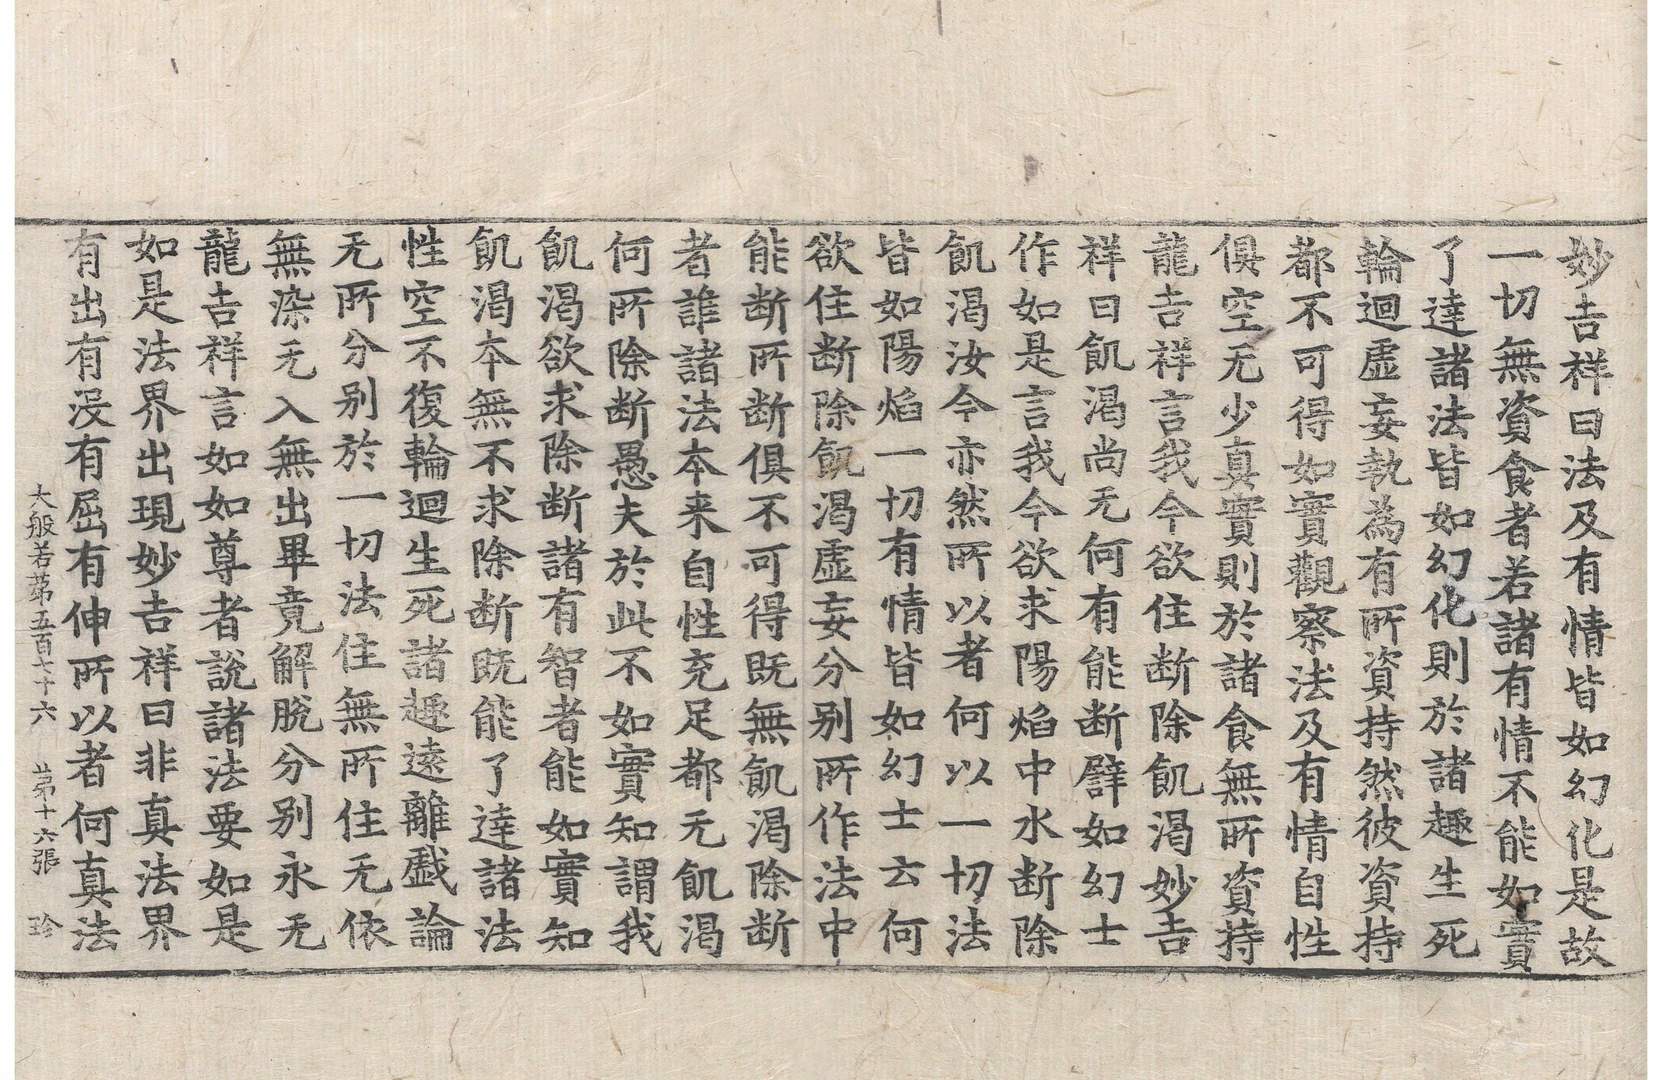 妙吉祥曰法及有情皆如幻化是故
一切無資食者若諸有情不能如實
了達諸法皆如幻化則於諸趣生死
輪迴虛妄執為有所資持然彼資持
都不可得如實觀察法及有情自性
俱空无少真實則於諸食無所資持
龍吉祥言我今欲住断除飢渴妙吉
祥曰飢渴尚无何有能断譬如幻士
作如是言我今欲求陽焰中水断除
飢渴汝今亦然所以者何以一切法
皆如陽焰一切有情皆如幻士云何
欲住断除飢渴虛妄分别所作法中
能断所断俱不可得既無飢渴除断
者誰諸法本来自性充足都无飢渴
何所除断愚夫於此不如實知謂我
飢渴欲求除断諸有智者能如實知
飢渴本無不求除断既能了達諸法
性空不復輪迴生死諸趣遠離戲論
无所分别於一切法住無所住无依
無染无入無出畢竟解脫分别永无
龍吉祥言如如尊者說諸法要如是
如是法界出現妙吉祥曰非真法界
有出有没有屈有伸所以者何真法
大般若苐五百七十六 苐十六張 珍